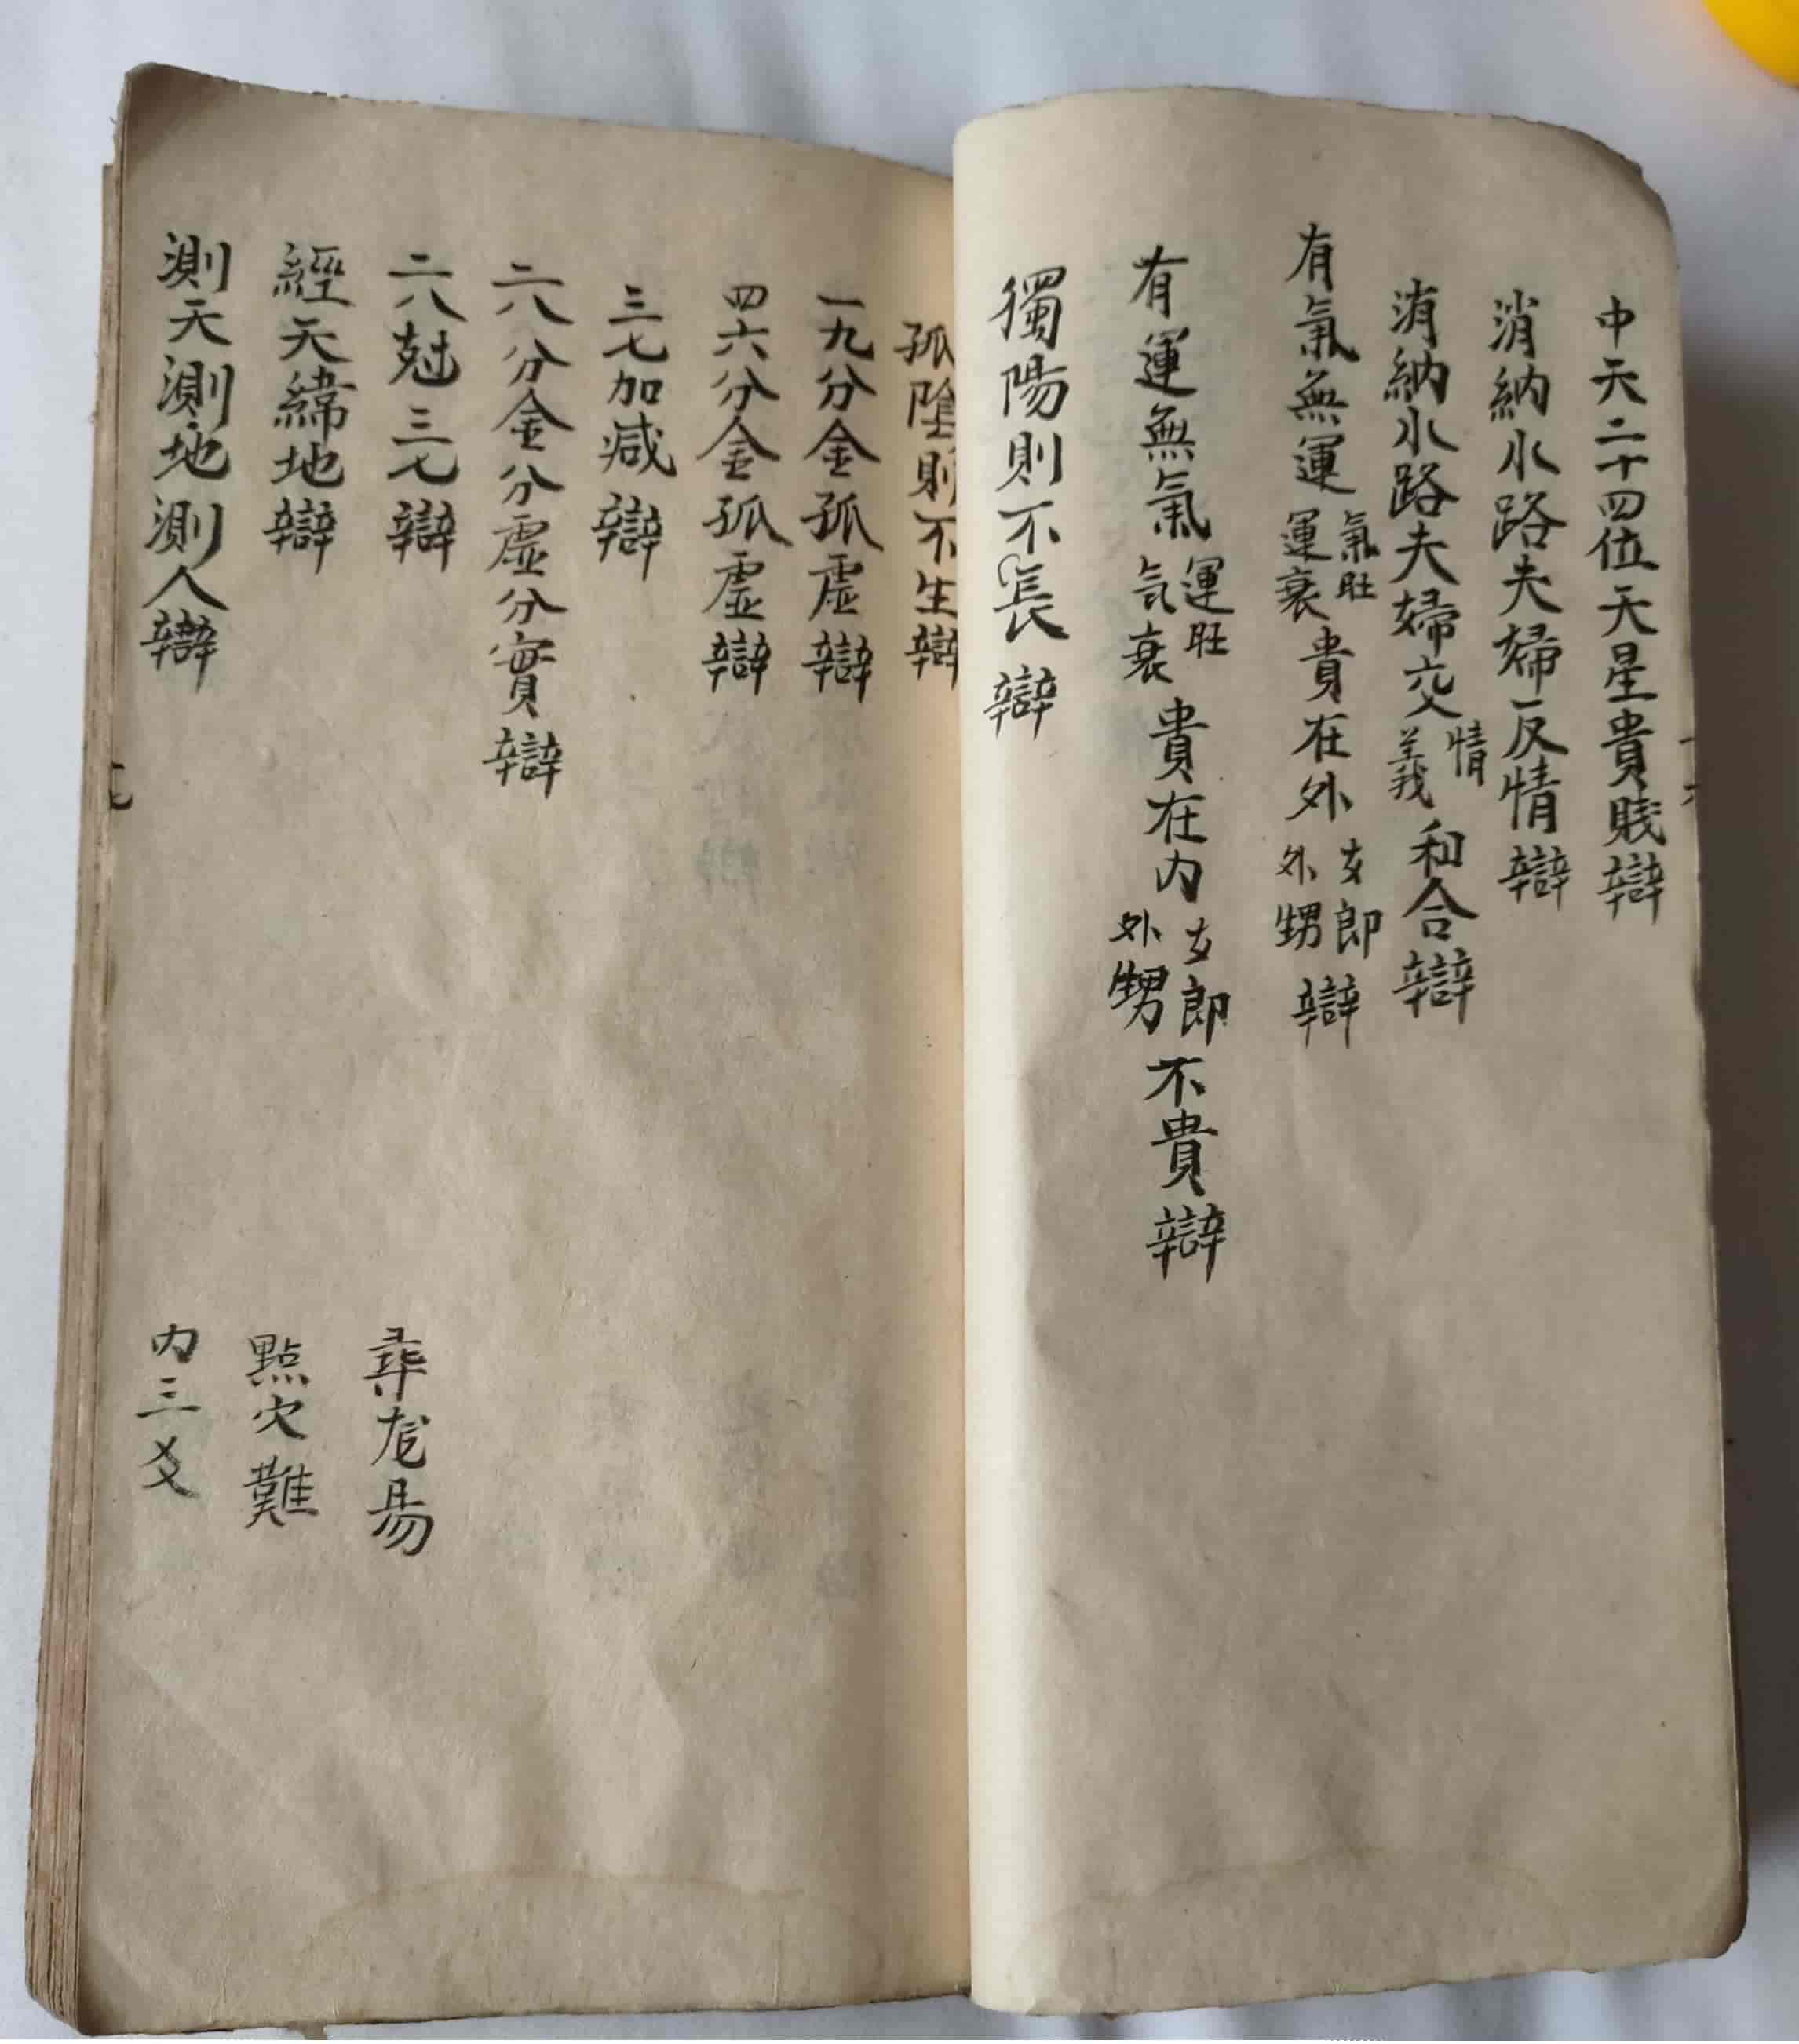 中天二十四位天星貴賤辯
消納水路夫婦反情辯
消納水路夫婦交情義和合辯
有氣無運氣旺運衰貴在外女郎外甥辯
有運無氣運旺気衰貴在内女郎外甥不貴辯
獨陽則不長辯
孤陰則不生辯
一九分金孤虛辯
四六分金孤虛辯
三七加減辯
二八分金分虛分實辯
二八尅三七辯
經天緯地辯
測天測地測人辯
尋龙易
點穴難
内三爻